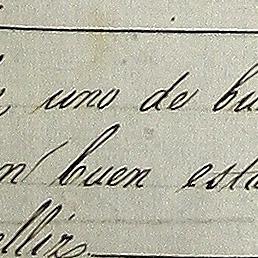 uno de bu
n buen esta
ellizo